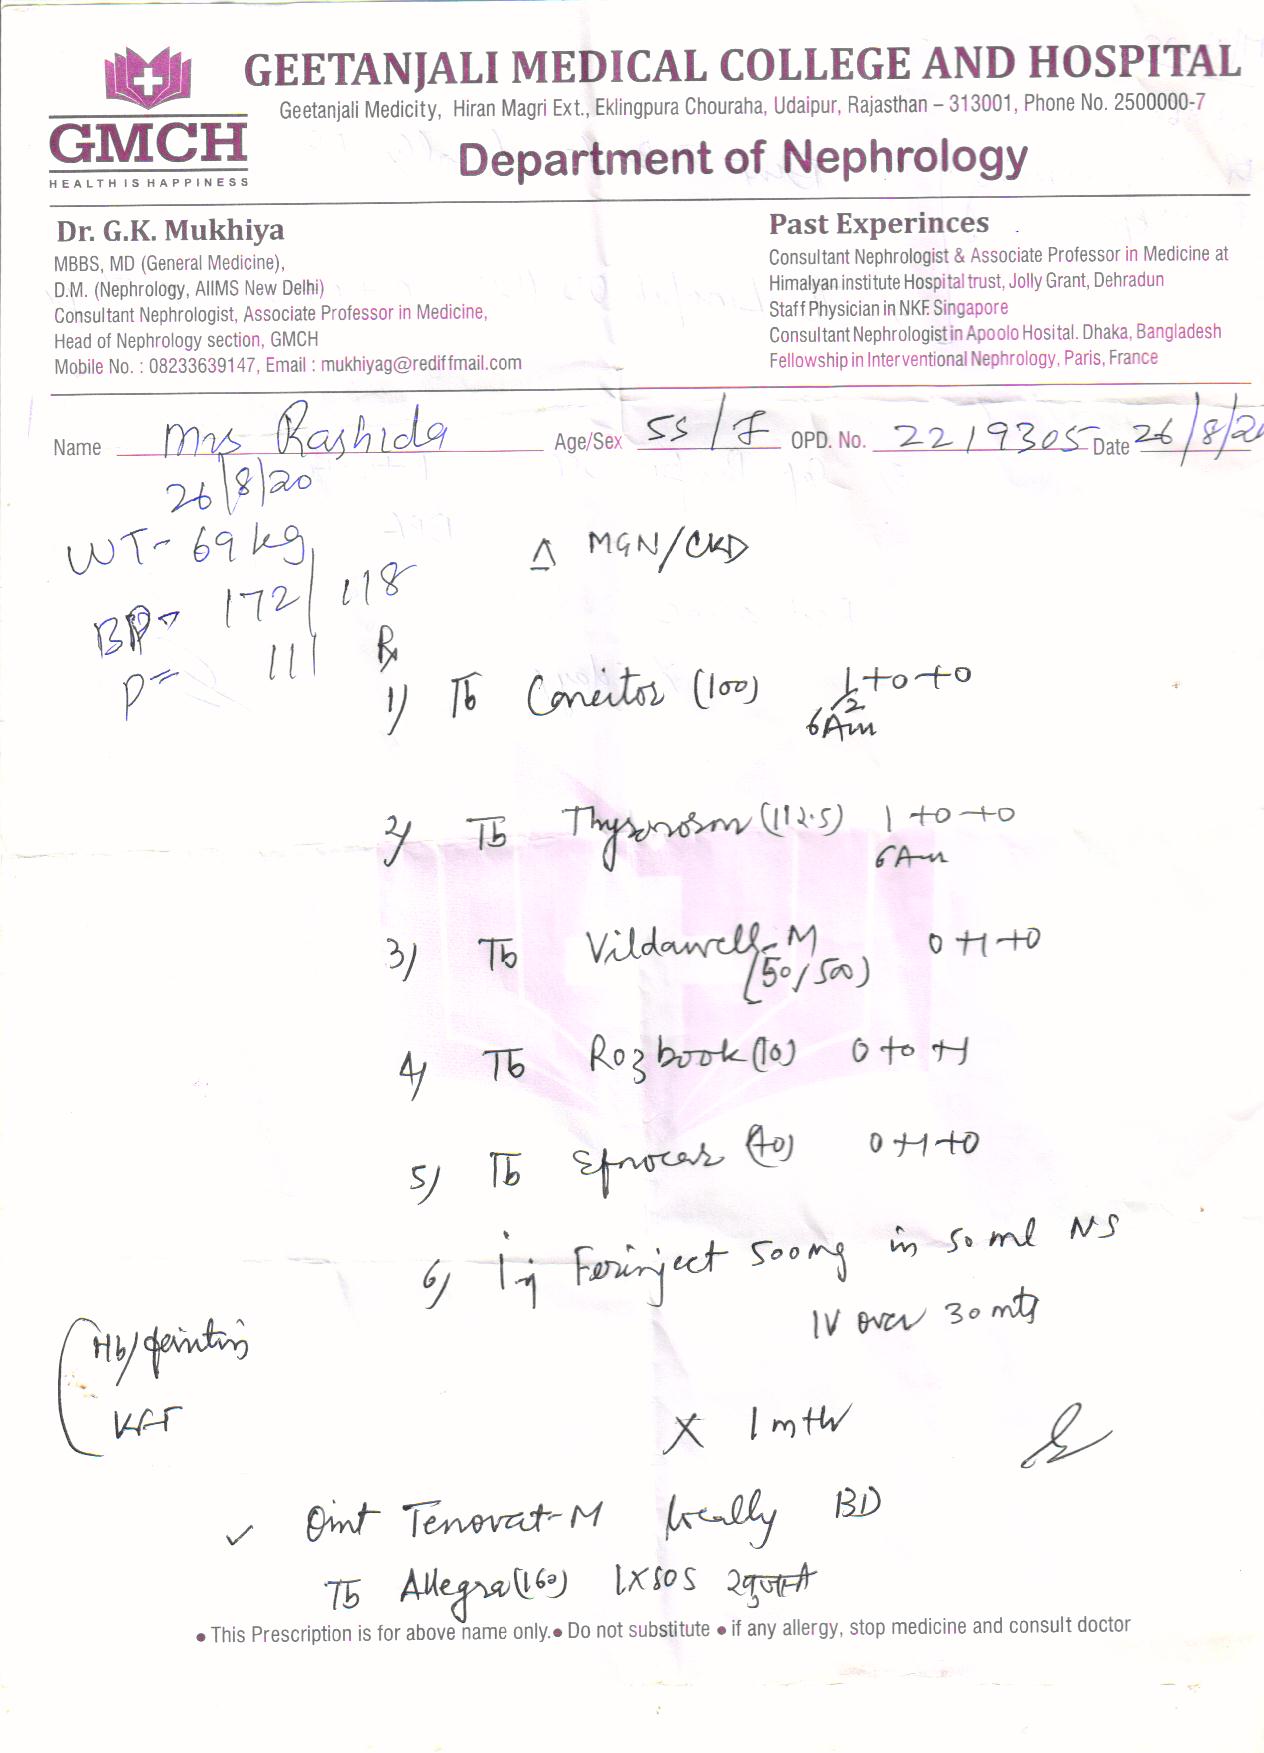 GEETANJALI MEDICAL COLLEGE AND HOSPITAL
Geetanjali Medicity, Hiran Magri Ext., Eklingpura Chouraha, Udaipur, Rajasthan – 313001, Phone No. 2500000-7
GMCH
HEALTH IS HAPPINESS
Department of Nephrology
Dr. G.K. Mukhiya
MBBS, MD (General Medicine),
D.M. (Nephrology, AIIMS New Delhi)
Consultant Nephrologist, Associate Professor in Medicine,
Head of Nephrology section, GMCH
Mobile No. : 08233639147, Email : mukhiyag@rediffmail.com
Past Experinces
Consultant Nephrologist & Associate Professor in Medicine at
Himalyan institute Hospital trust, Jolly Grant, Dehradun
Staff Physician in NKF. Singapore
Consultant Nephrologist in Apoolo Hosital. Dhaka, Bangladesh
Fellowship in Interventional Nephrology, Paris, France
Name Mrs Rashida Age/Sex 55/F OPD. No. 2219305 Date 26/8/20
26/8/20
WT- 69 kg
Δ MGN/CKD
BP- 172/118
P= 111
Rx
1) Tb (100) 1/2 +0+0
6Am
2) Tb Thyronorm (112.5) 1+0+0
6Am
3) Tb Vildawell-M 0+1+0
(50/500)
4) Tb Rozbook (10) 0+0+1
5) Tb 0+1+0
6) Inj Ferinject 500mg in 50 ml NS
IV over 30 mts
Hb/ferritin
KFT
X 1 mth
Oint Tenovat-M locally BD
Tb Allegra (160) 1XSOS
• This Prescription is for above name only. • Do not substitute • if any allergy, stop medicine and consult doctor